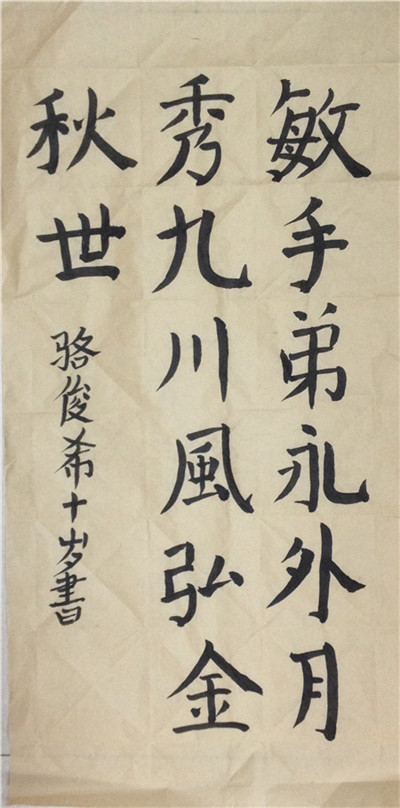 敏手弟永外月
秀九川風弘金
秋世
骆俊希十岁書